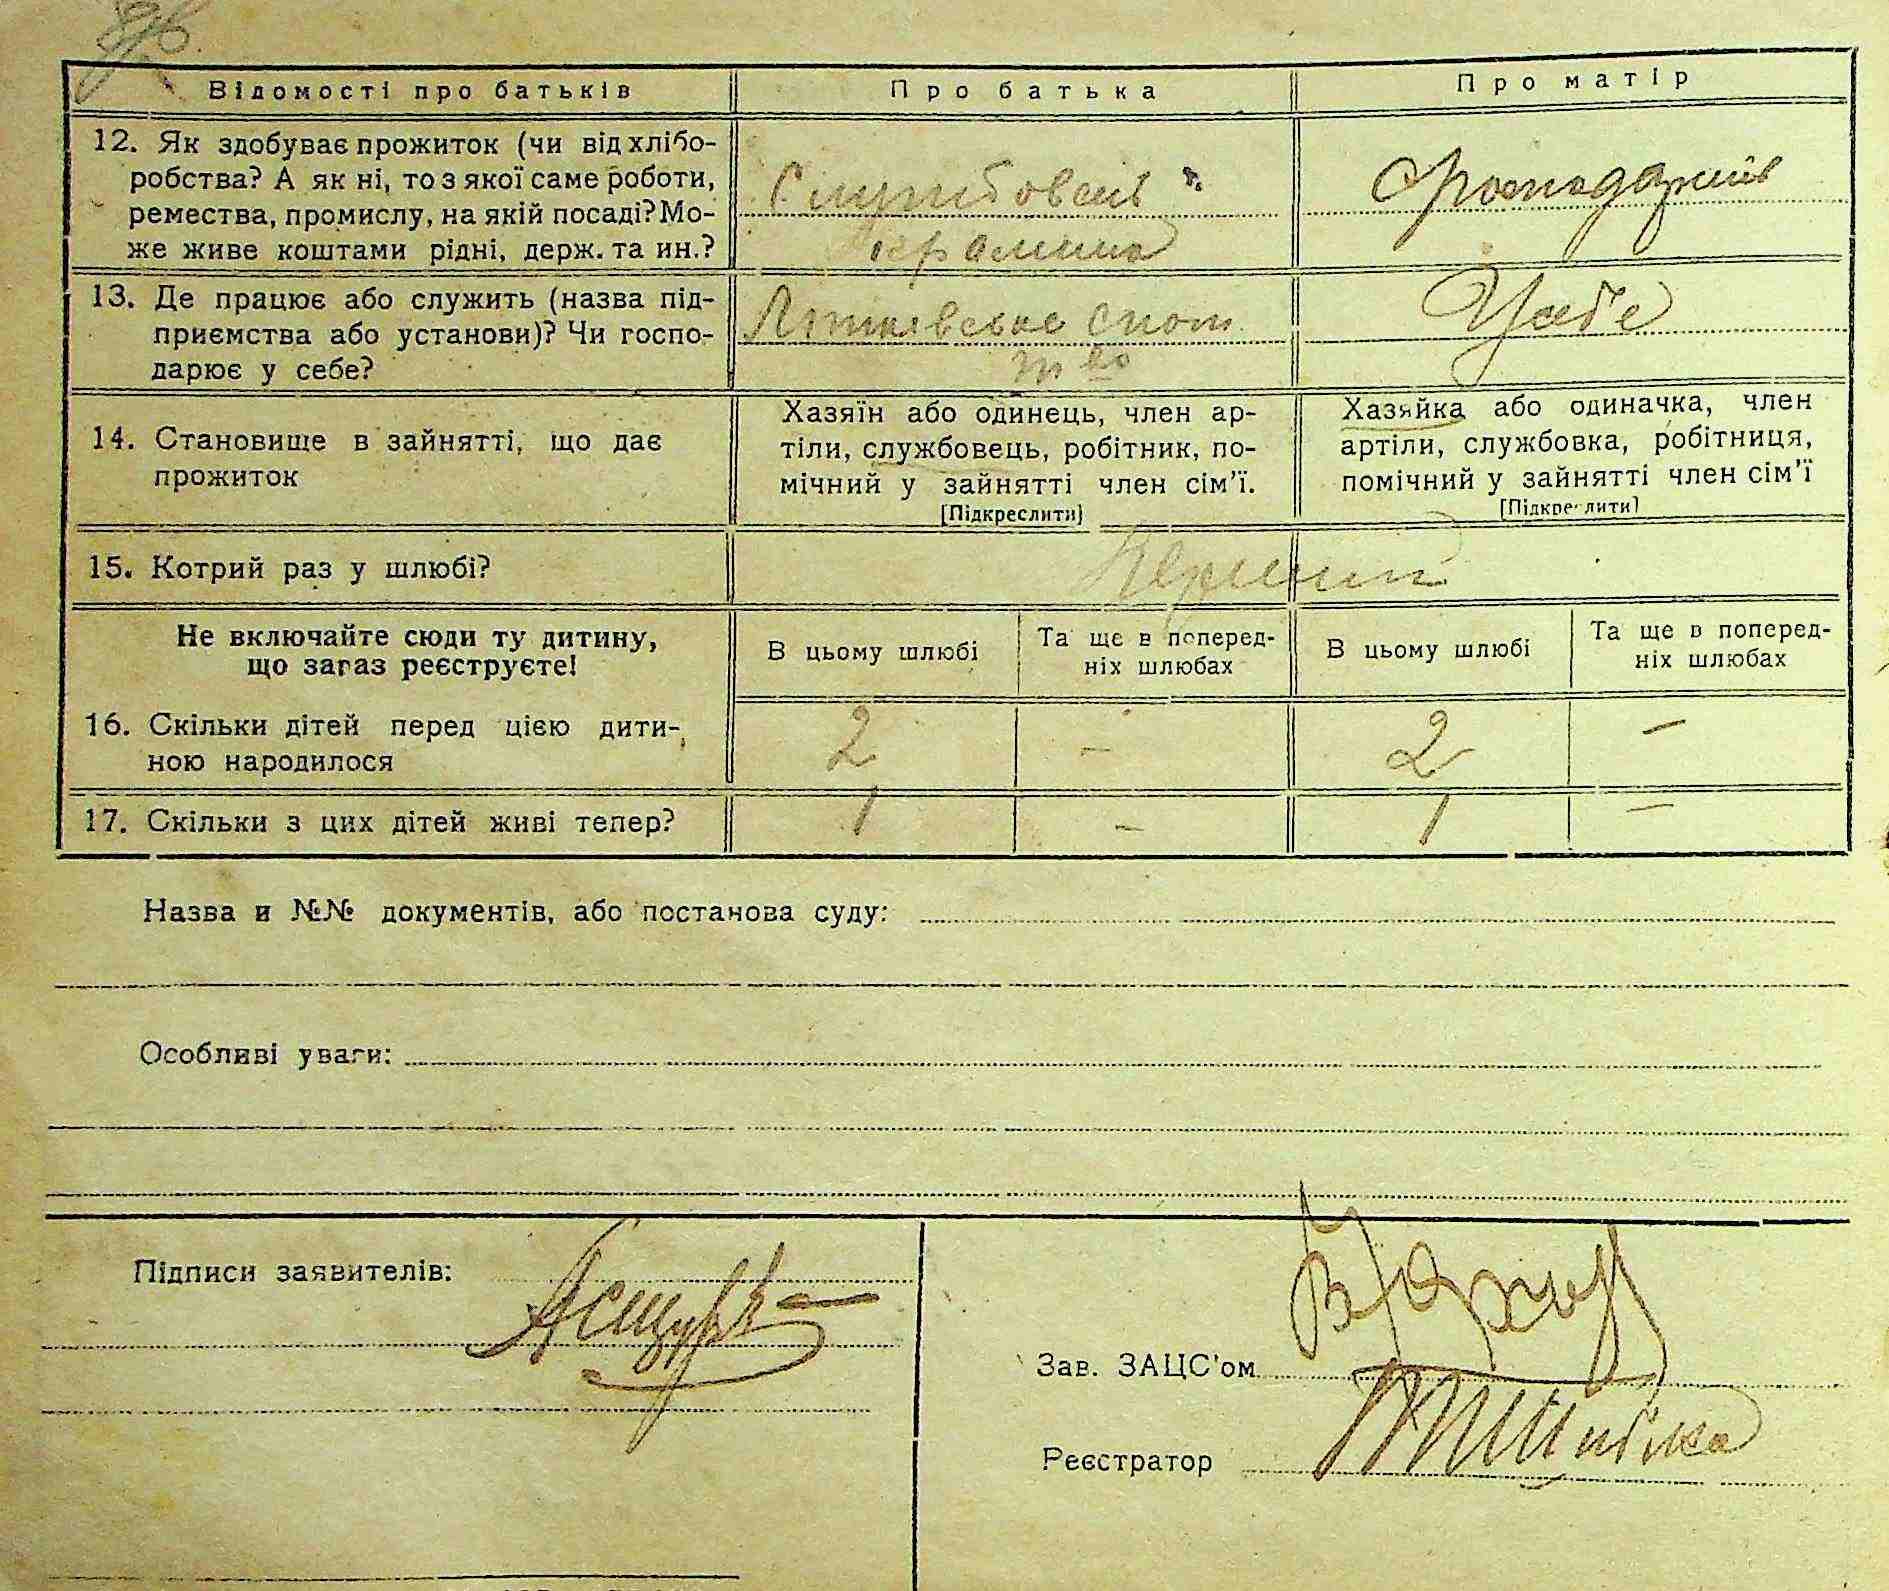 Відомості про батьків
Про батька
Про матір
12. Як здобуває прожиток (чи від хлібо-
робства? А як ні, то з якої саме роботи,
ремества, промислу, на якій посаді? Мо-
же живе коштами рідні, держ. та ин.?
Службовець
крамниці
13. Де працює або служить (назва під-
приємства або установи)? Чи госпо-
дарює у себе?
Спот.
т во
У себе
14. Становище в зайнятті, що дає
прожиток
Хазяїн або одинець, член ар-
тіли, службовець, робітник, по-
мічний у зайнятті член сім'ї.
[Підкреслити]
Хазяйка або одиначка, член
артіли, службовка, робітниця,
помічний у зайнятті член сім'ї
[Підкреслити]
15. Котрий раз у шлюбі?
Перший
Не включайте сюди ту дитину,
що зараз реєструєте!
В цьому шлюбі
Та ще в поперед-
ніх шлюбах
В цьому шлюбі
Та ще в поперед-
ніх шлюбах
16. Скільки дітей перед цією дити-
ною народилося
2 – 2 –
17. Скільки з цих дітей живі тепер?
1 – 1 –
Назва и №№ документів, або постанова суду:
Особливі уваги:
Підписи заявителів:
Зав. ЗАЦС'ом
Реєстратор